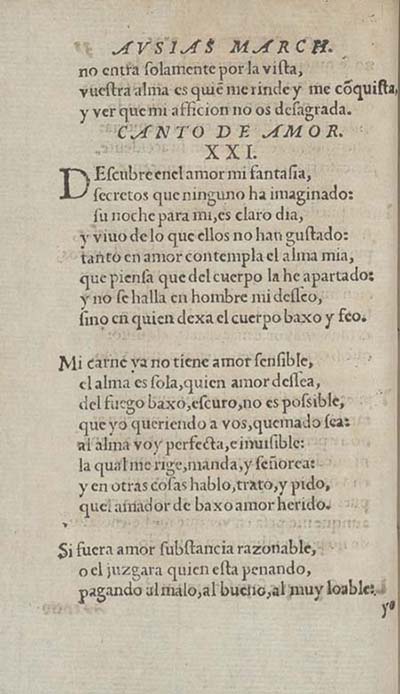 AVSIAS MARCH.
no entra ſolamente por la viſta,
vueſtra alma es quiẽ me rinde y me cõquiſta,
y ver que mi afficion no os deſagrada.
CANTO DE AMOR.
XXI.
DEſcubre enel amor mi fantaſia,
ſecretos que ninguno ha imaginado:
ſu noche para mi, es claro dia,
y viuo de lo que ellos no han guſtado:
tanto en amor contempla el alma mia,
que pienſa que del cuerpo la he apartado:
y no ſe halla en hombre mi deſſeo,
ſino en quien dexa el cuerpo baxo y feo.
Mi carne ya no tiene amor ſenſible,
el alma es ſola, quien amor deſſea,
del fuego baxo, eſcuro, no es poſsible,
que yo queriendo a vos, quemado ſea:
al alma voy perfecta, e inuiſible:
la qual me rige, manda, y ſeñorea:
y en otras coſas hablo, trato, y pido,
quel amador de baxo amor herido.
Si fuera amor ſubſtancia razonable,
o el juzgara quien eſta penando,
pagando al malo, al bueno, al muy loable:
yo